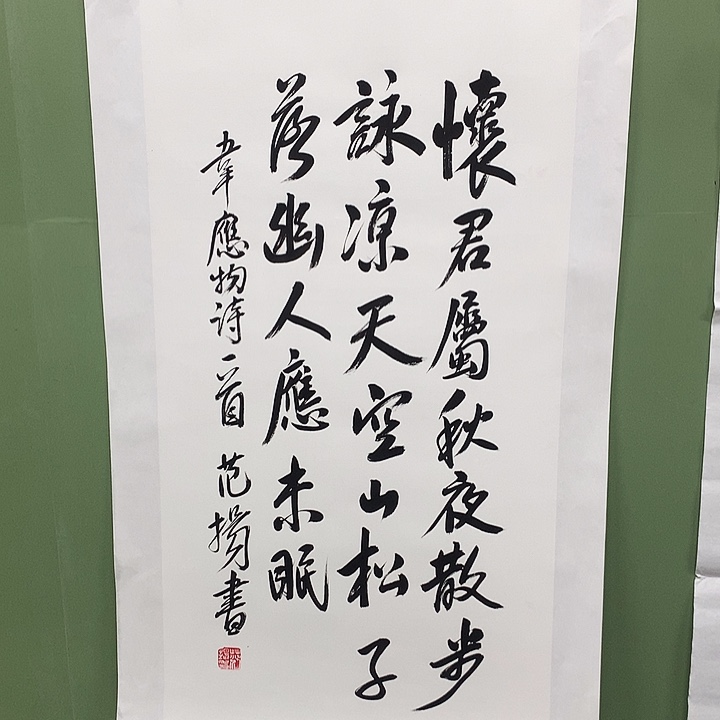 懷君屬秋夜散步
詠凉天空山松子
落幽人應未眠
韋應物詩一首 范揚書